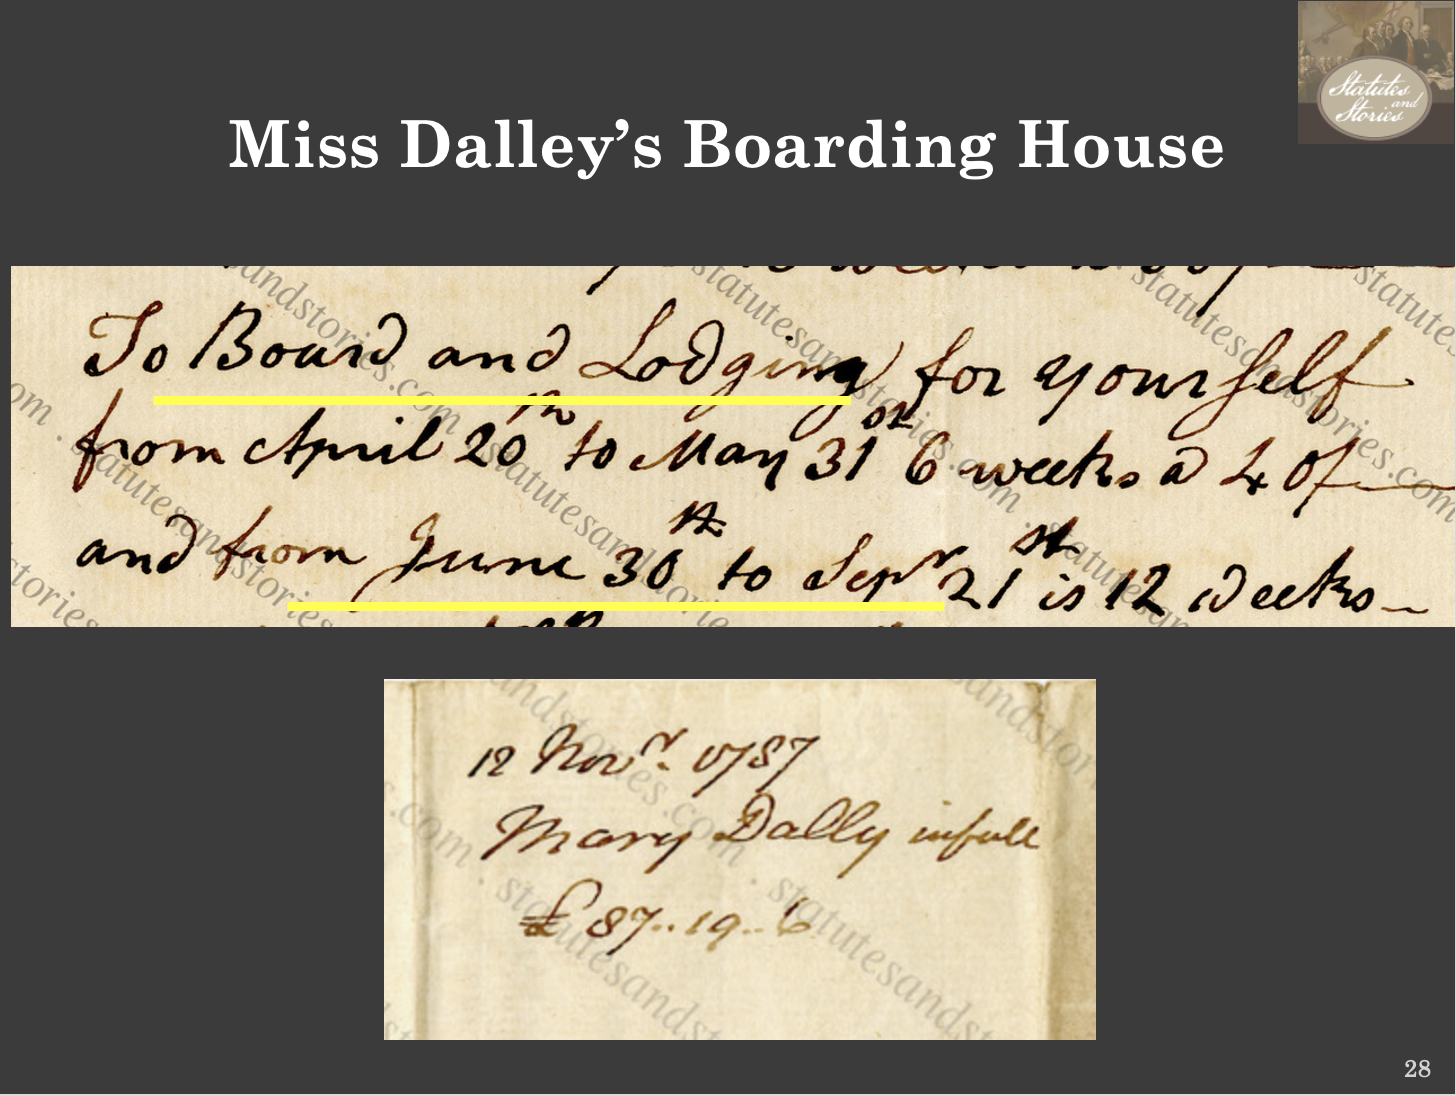 Statutes
and
Stories
Miss Dalley's Boarding House
To Board and Lodging for yourself
from April 20th to May 31st 6 weeks a 40/
and from June 30th to Sepr 21st is 12 weeks
12 Novr. 1787
Mary Dally in full
£ 87..19..6
28